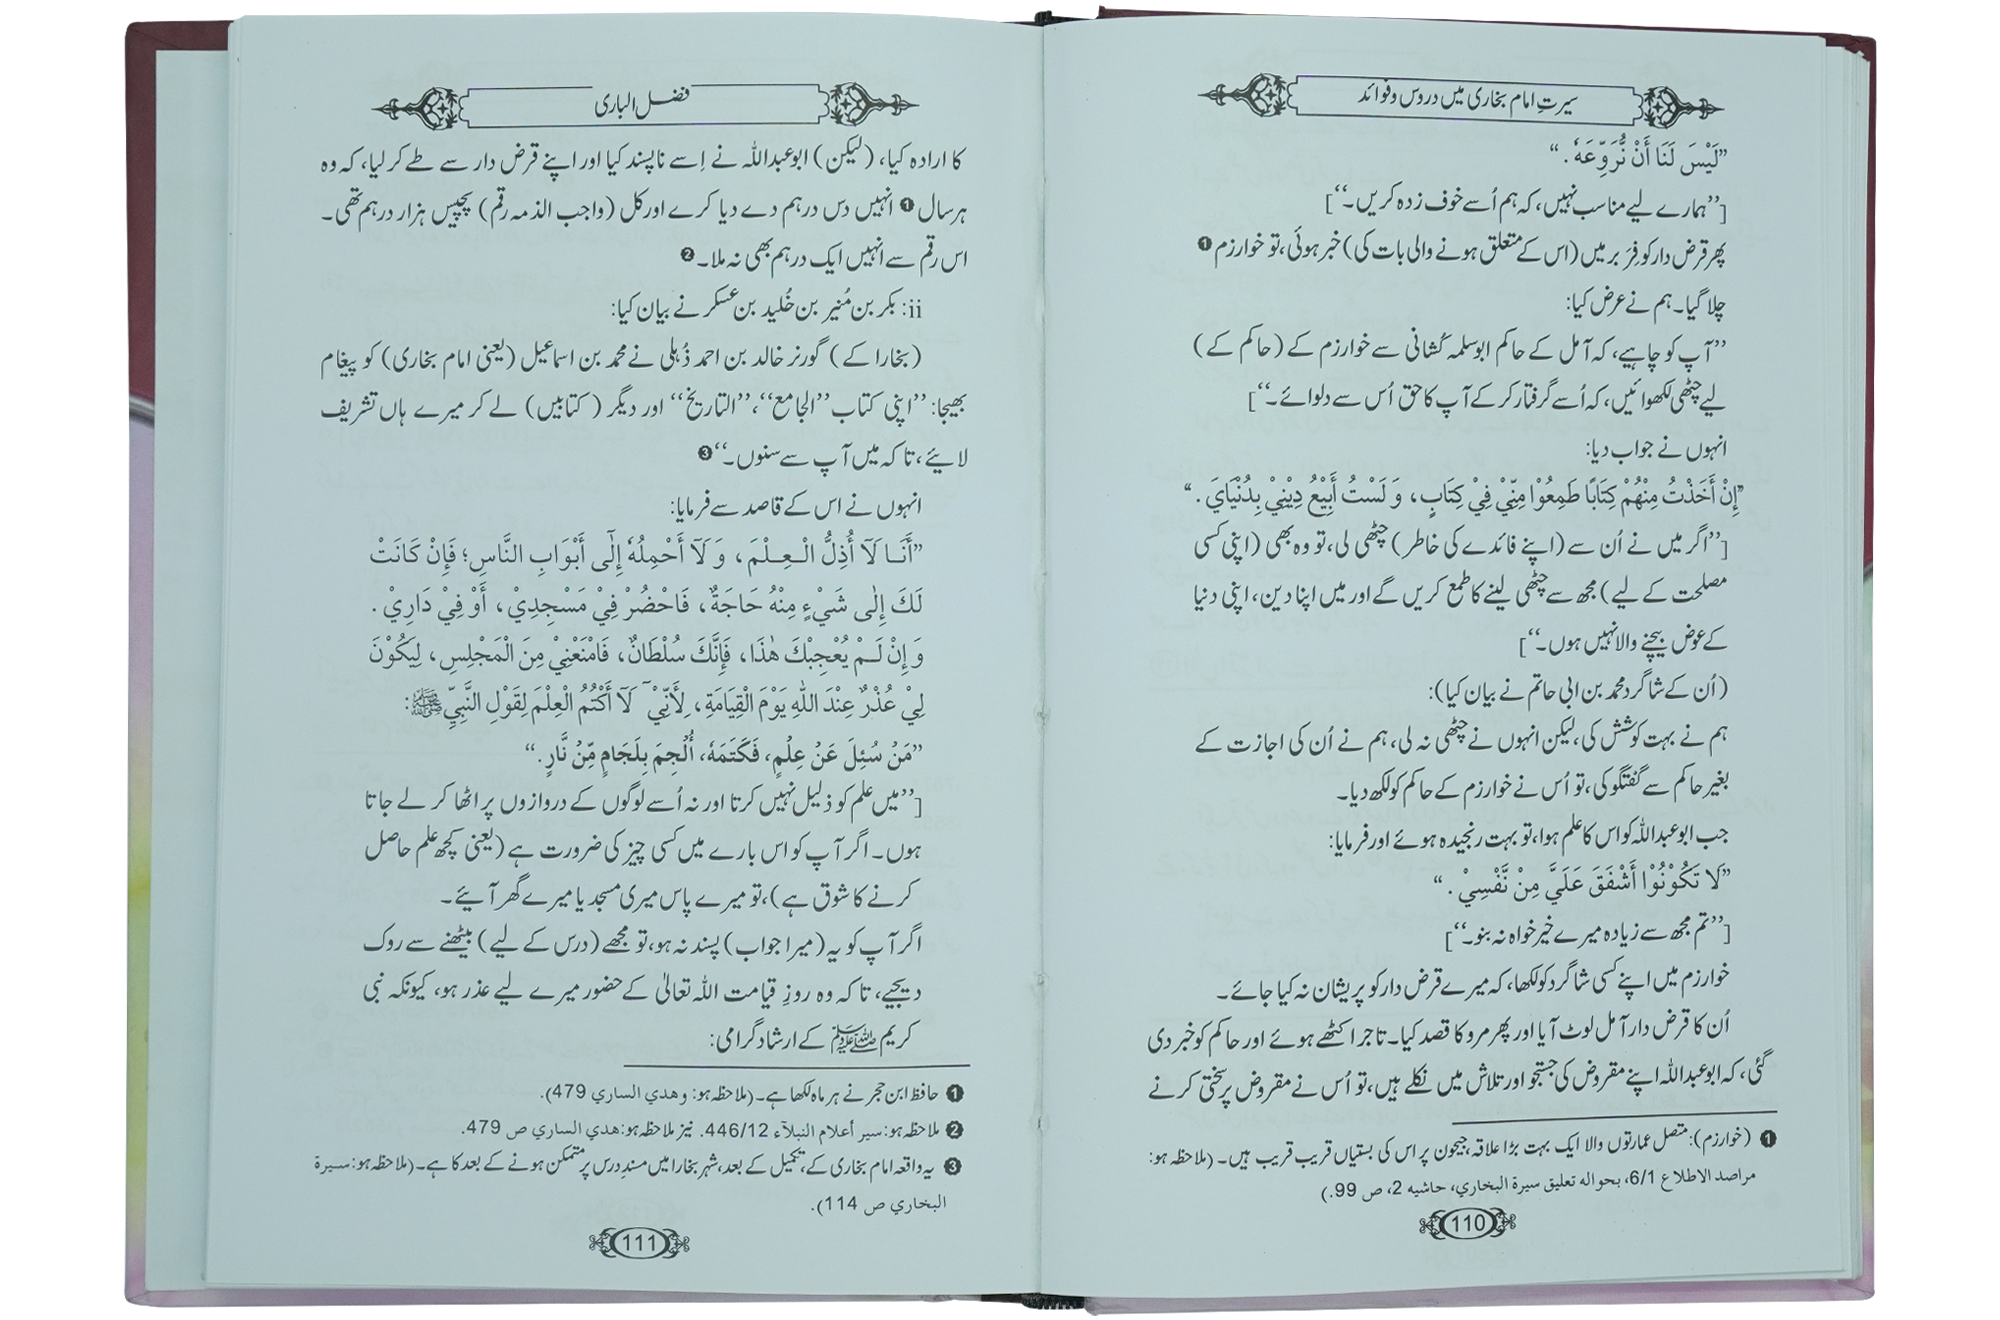 سیرتِ امام بخاری میں دروس و فوائد
”لَيْسَ لَنَا أَنْ نُّرَوِّعَهٗ.“
[’’ہمارے لیے مناسب نہیں، کہ ہم اُسے خوف زدہ کریں۔‘‘]
پھر قرض دار کو فِرَبر میں (اس کے متعلق ہونے والی بات کی) خبر ہوئی، تو خوارزم ❶
چلا گیا۔ ہم نے عرض کیا:
’’آپ کو چاہیے، کہ آمل کے حاکم ابوسلمہ کُشانی سے خوارزم کے (حاکم کے)
لیے چٹھی لکھوائیں، کہ اُسے گرفتار کرکے آپ کا حق اُس سے دلوائے۔‘‘]
انہوں نے جواب دیا:
”إِنْ أَخَذْتُ مِنْهُمْ كِتَابًا طَمِعُوْا مِنِّيْ فِيْ كِتَابٍ، وَ لَسْتُ أَبِيْعُ دِيْنِيْ بِدُنْيَايَ.“
[’’اگر میں نے اُن سے (اپنے فائدے کی خاطر) چٹھی لی، تو وہ بھی (اپنی کسی
مصلحت کے لیے) مجھ سے چٹھی لینے کا طمع کریں گے اور میں اپنا دین، اپنی دنیا
کے عوض بیچنے والا نہیں ہوں۔‘‘]
(اُن کے شاگرد محمد بن ابی حاتم نے بیان کیا):
ہم نے بہت کوشش کی، لیکن انہوں نے چٹھی نہ لی، ہم نے اُن کی اجازت کے
بغیر حاکم سے گفتگو کی، تو اُس نے خوارزم کے حاکم کو لکھ دیا۔
جب ابوعبداللہ کو اس کا علم ہوا، تو بہت رنجیدہ ہوئے اور فرمایا:
”لَا تَكُوْنُوْا أَشْفَقَ عَلَيَّ مِنْ نَّفْسِيْ.“
[’’تم مجھ سے زیادہ میرے خیر خواہ نہ بنو۔‘‘]
خوارزم میں اپنے کسی شاگرد کو لکھا، کہ میرے قرض دار کو پریشان نہ کیا جائے۔
اُن کا قرض دار آمل لوٹ آیا اور پھر مرو کا قصد کیا۔ تاجر اکٹھے ہوئے اور حاکم کو خبر دی
گئی، کہ ابوعبداللہ اپنے مقروض کی جستجو اور تلاش میں نکلے ہیں، تو اُس نے مقروض پر سختی کرنے
❶ (خوارزم): متصل عمارتوں والا ایک بہت بڑا علاقہ، جیحون پر اس کی بستیاں قریب قریب ہیں۔ (ملاحظہ ہو:
مراصد الاطلاع 6/1، بحوالہ تعلیق سیرة البخاري، حاشیہ 2، ص 99.)
110
فضل الباری
کا ارادہ کیا، (لیکن) ابوعبداللہ نے اِسے ناپسند کیا اور اپنے قرض دار سے طے کر لیا، کہ وہ
ہر سال ❶ انہیں دس درہم دے دیا کرے اور کل (واجب الذمہ رقم) پچیس ہزار درہم تھی۔
اس رقم سے انہیں ایک درہم بھی نہ ملا۔ ❷
ii: بکر بن مُنیر بن خُلید بن عسکر نے بیان کیا:
(بخارا کے) گورنر خالد بن احمد ذُہلی نے محمد بن اسماعیل (یعنی امام بخاری) کو پیغام
بھیجا: ’’اپنی کتاب ’’الجامع‘‘، ’’التاریخ‘‘ اور دیگر (کتابیں) لے کر میرے ہاں تشریف
لایئے، تاکہ میں آپ سے سنوں۔‘‘ ❸
انہوں نے اس کے قاصد سے فرمایا:
”أَنَا لَآ أُذِلُّ الْعِلْمَ، وَ لَآ أَحْمِلُهٗ إِلٰٓى أَبْوَابِ النَّاسِ؛ فَإِنْ كَانَتْ
لَكَ إِلٰى شَيْءٍ مِنْهُ حَاجَةٌ، فَاحْضُرْ فِيْ مَسْجِدِيْ، أَوْ فِيْ دَارِيْ.
وَ إِنْ لَمْ يُعْجِبْكَ هٰذَا، فَإِنَّكَ سُلْطَانٌ، فَامْنَعْنِيْ مِنَ الْمَجْلِسِ، لِيَكُوْنَ
لِيْ عُذْرٌ عِنْدَ اللهِ يَوْمَ الْقِيَامَةِ، لِأَنِّيْ لَآ أَكْتُمُ الْعِلْمَ لِقَوْلِ النَّبِيِّ ﷺ:
”مَنْ سُئِلَ عَنْ عِلْمٍ، فَكَتَمَهٗ، أُلْجِمَ بِلَجَامٍ مِّنْ نَّارٍ.“
[’’میں علم کو ذلیل نہیں کرتا اور نہ اُسے لوگوں کے دروازوں پر اٹھا کر لے جاتا
ہوں۔ اگر آپ کو اس بارے میں کسی چیز کی ضرورت ہے (یعنی کچھ علم حاصل
کرنے کا شوق ہے)، تو میرے پاس میری مسجد یا میرے گھر آیئے۔
اگر آپ کو یہ (میرا جواب) پسند نہ ہو، تو مجھے (درس کے لیے) بیٹھنے سے روک
دیجیے، تاکہ وہ روزِ قیامت اللہ تعالیٰ کے حضور میرے لیے عذر ہو، کیونکہ نبی
کریم ﷺ کے ارشاد گرامی:
❶ حافظ ابن حجر نے ہر ماہ لکھا ہے۔ (ملاحظہ ہو: وهدي الساري 479).
❷ ملاحظہ ہو: سير أعلام النبلآء 446/12. نیز ملاحظہ ہو: هدي الساري ص 479.
❸ یہ واقعہ امام بخاری کے، تکمیل کے بعد، شہر بخارا میں مسندِ درس پر متمکن ہونے کے بعد کا ہے۔ (ملاحظہ ہو: سيرة
البخاري ص 114).
111